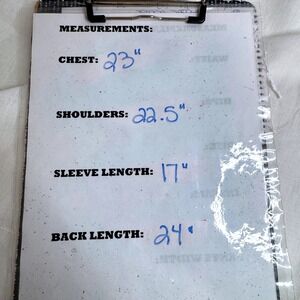 MEASUREMENTS:
CHEST: 23"
SHOULDERS: 22.5"
SLEEVE LENGTH: 17"
BACK LENGTH: 24"